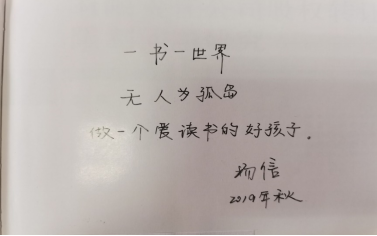 一书一世界
无人为孤岛
做一个爱读书的好孩子。
杨信
2019年秋